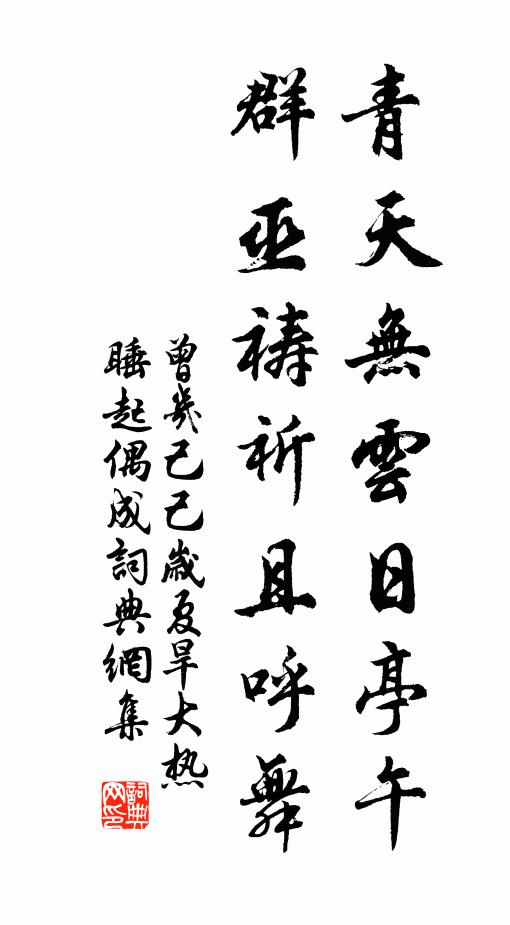 青天無雲日亭午
群巫禱祈且呼舞
曾幾己巳歲夏旱大热
睡起偶成詞典網集
詞典
网印